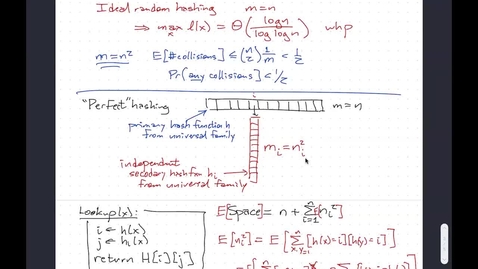 Ideal random hashing m=n
⇒ max_x l(x) = Θ( log n / log log n ) whp
m=n² E[#collisions] ≤ (n 2) 1/m < 1/2
Pr(any collisions) < 1/2
"Perfect" hashing
i
m=n
primary hash function h
from universal family
m_i = n_i²
independent
secondary hash fxn h_i
from universal family
Lookup(x):
i ← h(x)
j ← h_i(x)
return H[i][j]
E[Space] = n + Σ_{i=1}^n E[n_i²]
E[n_i²] = E[ Σ_{x,y=1}^n [h(x)=i][h(y)=i] ]